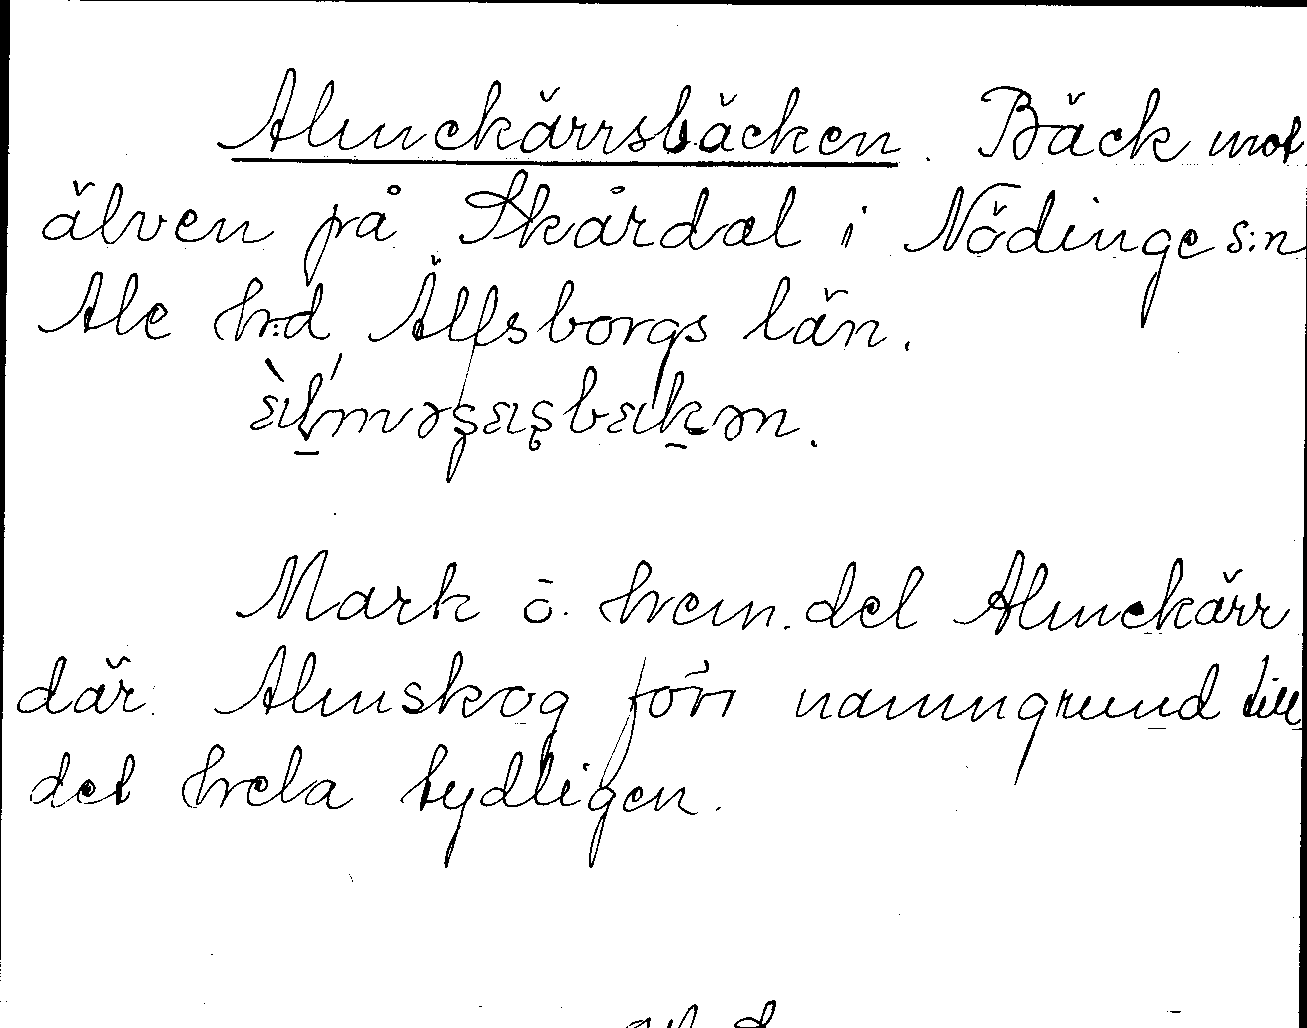 Almekärrsbäcken. Bäck mot
älven på Skårdal i Nödinge s:n
Ale h:d Älfsborgs län.

Mark o. hem. del Almekärr
där Almskog förr namngrund till
det hela tydligen.